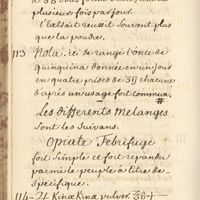 plusieurs fois par jour.
l'extrait reussit souvent plus
que la poudre.
113 Nota. ici se range l'once de
quinquina donnée en un jour
en quatre prises de 3ij chacune
d'après un usage fort commun.
#
Les differents melanges
sont les suivans.
opiate Febrifuge
fort simple et fort repandu
parmi le peuple à titre de
specifique.
114 - 24 KinaKina pulver.